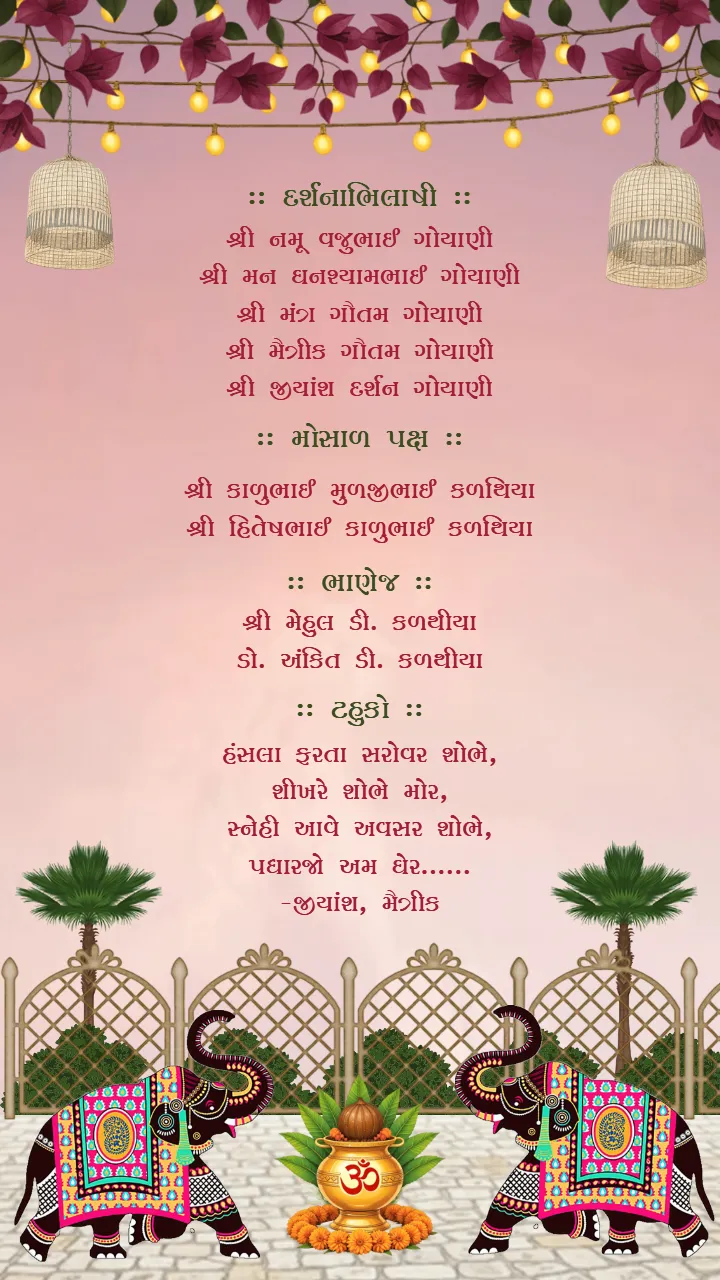 :: દર્શનાભિલાષી ::
શ્રી નમૂ વજુભાઈ ગોયાણી
શ્રી મન ઘનશ્યામભાઈ ગોયાણી
શ્રી મંત્ર ગૌતમ ગોયાણી
શ્રી મૈત્રીક ગૌતમ ગોયાણી
શ્રી જીયાંશ દર્શન ગોયાણી
:: મોસાળ પક્ષ ::
શ્રી કાળુભાઈ મુળજીભાઈ કળથિયા
શ્રી હિતેષભાઈ કાળુભાઈ કળથિયા
:: ભાણેજ ::
શ્રી મેહુલ ડી. કળથીયા
ડો. અંકિત ડી. કળથીયા
:: ટહુકો ::
હંસલા ફરતા સરોવર શોભે,
શીખરે શોભે મોર,
સ્નેહી આવે અવસર શોભે,
પધારજો અમ ઘેર......
-જીયાંશ, મૈત્રીક
ૐ